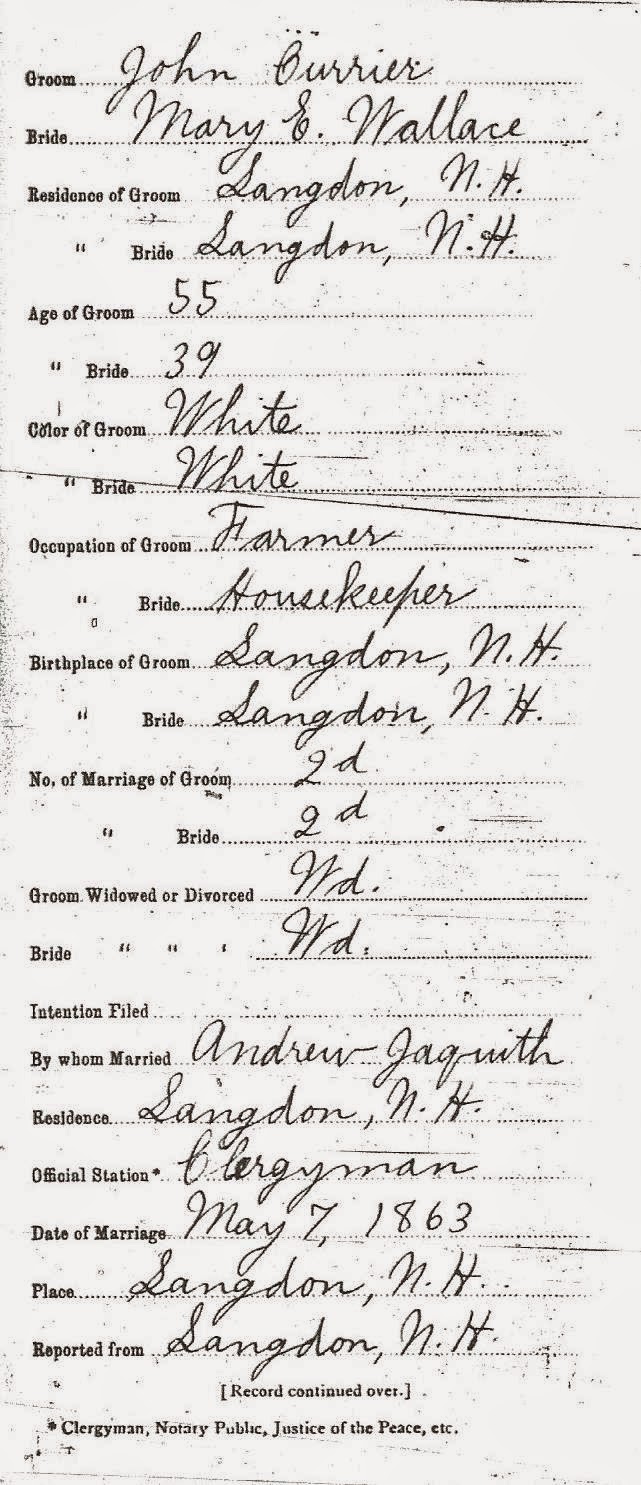 Groom John Currier
Bride Mary E. Wallace
Residence of Groom Langdon, N.H.
" Bride Langdon, N.H.
Age of Groom 55
" Bride 39
Color of Groom White
" Bride White
Occupation of Groom Farmer
" Bride Housekeeper
Birthplace of Groom Langdon, N.H.
" Bride Langdon, N.H.
No. of Marriage of Groom 2d
" Bride 2d
Groom Widowed or Divorced Wd.
Bride " " " Wd.
Intention Filed
By whom Married Andrew Jaquith
Residence Langdon, N.H.
Official Station* Clergyman
Date of Marriage May 7, 1863
Place Langdon, N.H.
Reported from Langdon, N.H.
[Record continued over.]
* Clergyman, Notary Public, Justice of the Peace, etc.